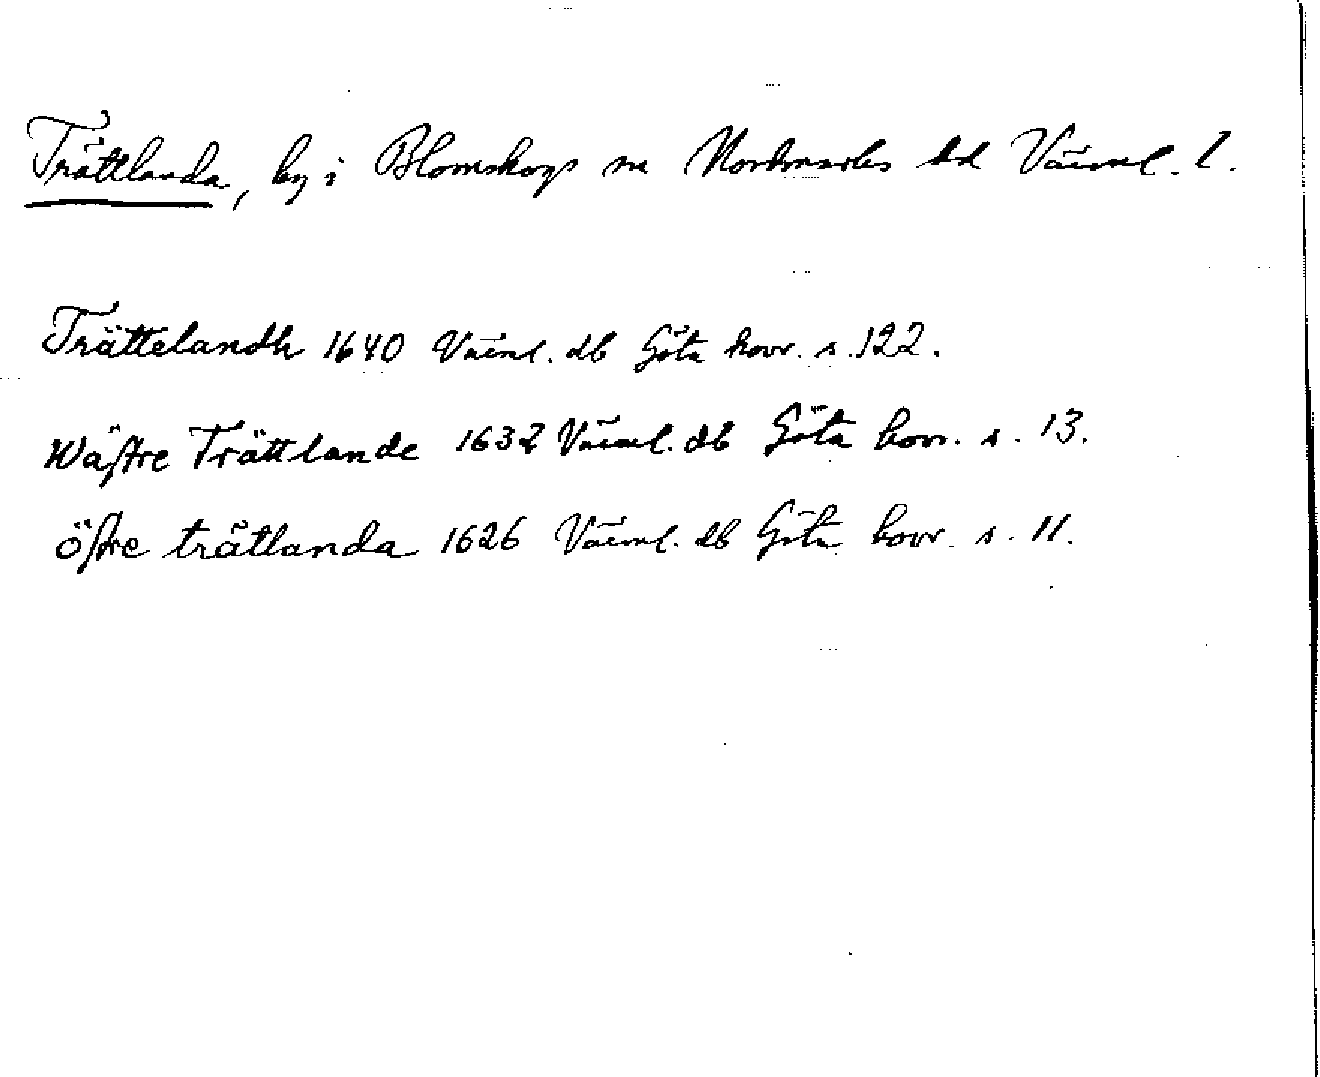 Trättlanda, by i Blomskogs sn Nordmarks hd Värml. l.
Trättelandh 1640 Värml. db Göta hovr. s. 122.
Wästre Trättlande 1632 Värml. db Göta hovr. s. 13.
östre trätlanda 1626 Värml. db Göta hovr. s. 11.